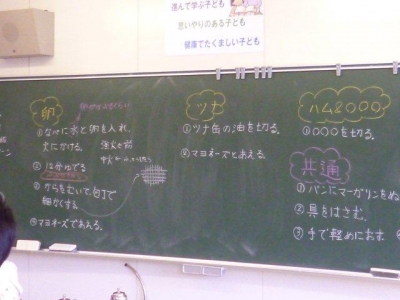 進んで学ぶ子ども
思いやりのある子ども
健康でたくましい子ども
卵
①なべに水と卵を入れ、
火にかける。
②12分ゆでる
③からをむいて、包丁で
細かくする。
④マヨネーズであえる。
ツナ
①ツナ缶の油を切る。
②マヨネーズとあえる
ハム2000
①〇〇〇を切る。
共通
①パンにマーガリンをぬ
②具をはさむ。
③手で軽めにおす